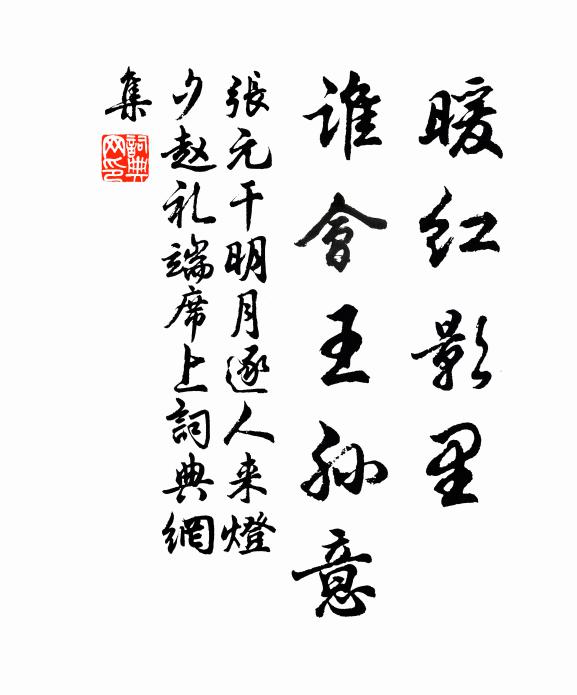 暖红影里
谁會王孙意
張元干明月逐人来燈
夕赵礼端席上詞典網
集
詞典网印